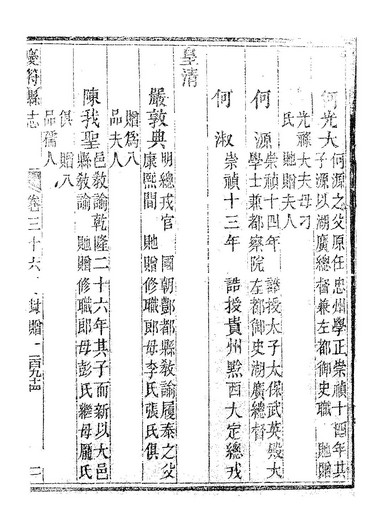 何光大
何源之父原任忠州學正崇禎十四年其
子源以湖廣總督兼左都御史職 貤贈
光祿大夫母刁
氏 貤贈夫人
何源
崇禎十四年 誥授太子太保武英殿大
學士兼都察院左都御史湖廣總督
何淑
崇禎十三年 誥授貴州黔西大定總戎
皇清
嚴敦典
明總戎官 國朝酆都縣敎諭履泰之父
康熙間 貤贈修職郎母李氏張氏俱
贈爲八
品夫人
陳我聖
邑敎諭乾隆二十六年其子而新以大邑
縣敎諭 貤贈修職郎母彭氏繼母龎氏
俱 贈八
品孺人
慶符縣志 卷三十六 封贈 二百九十四 二